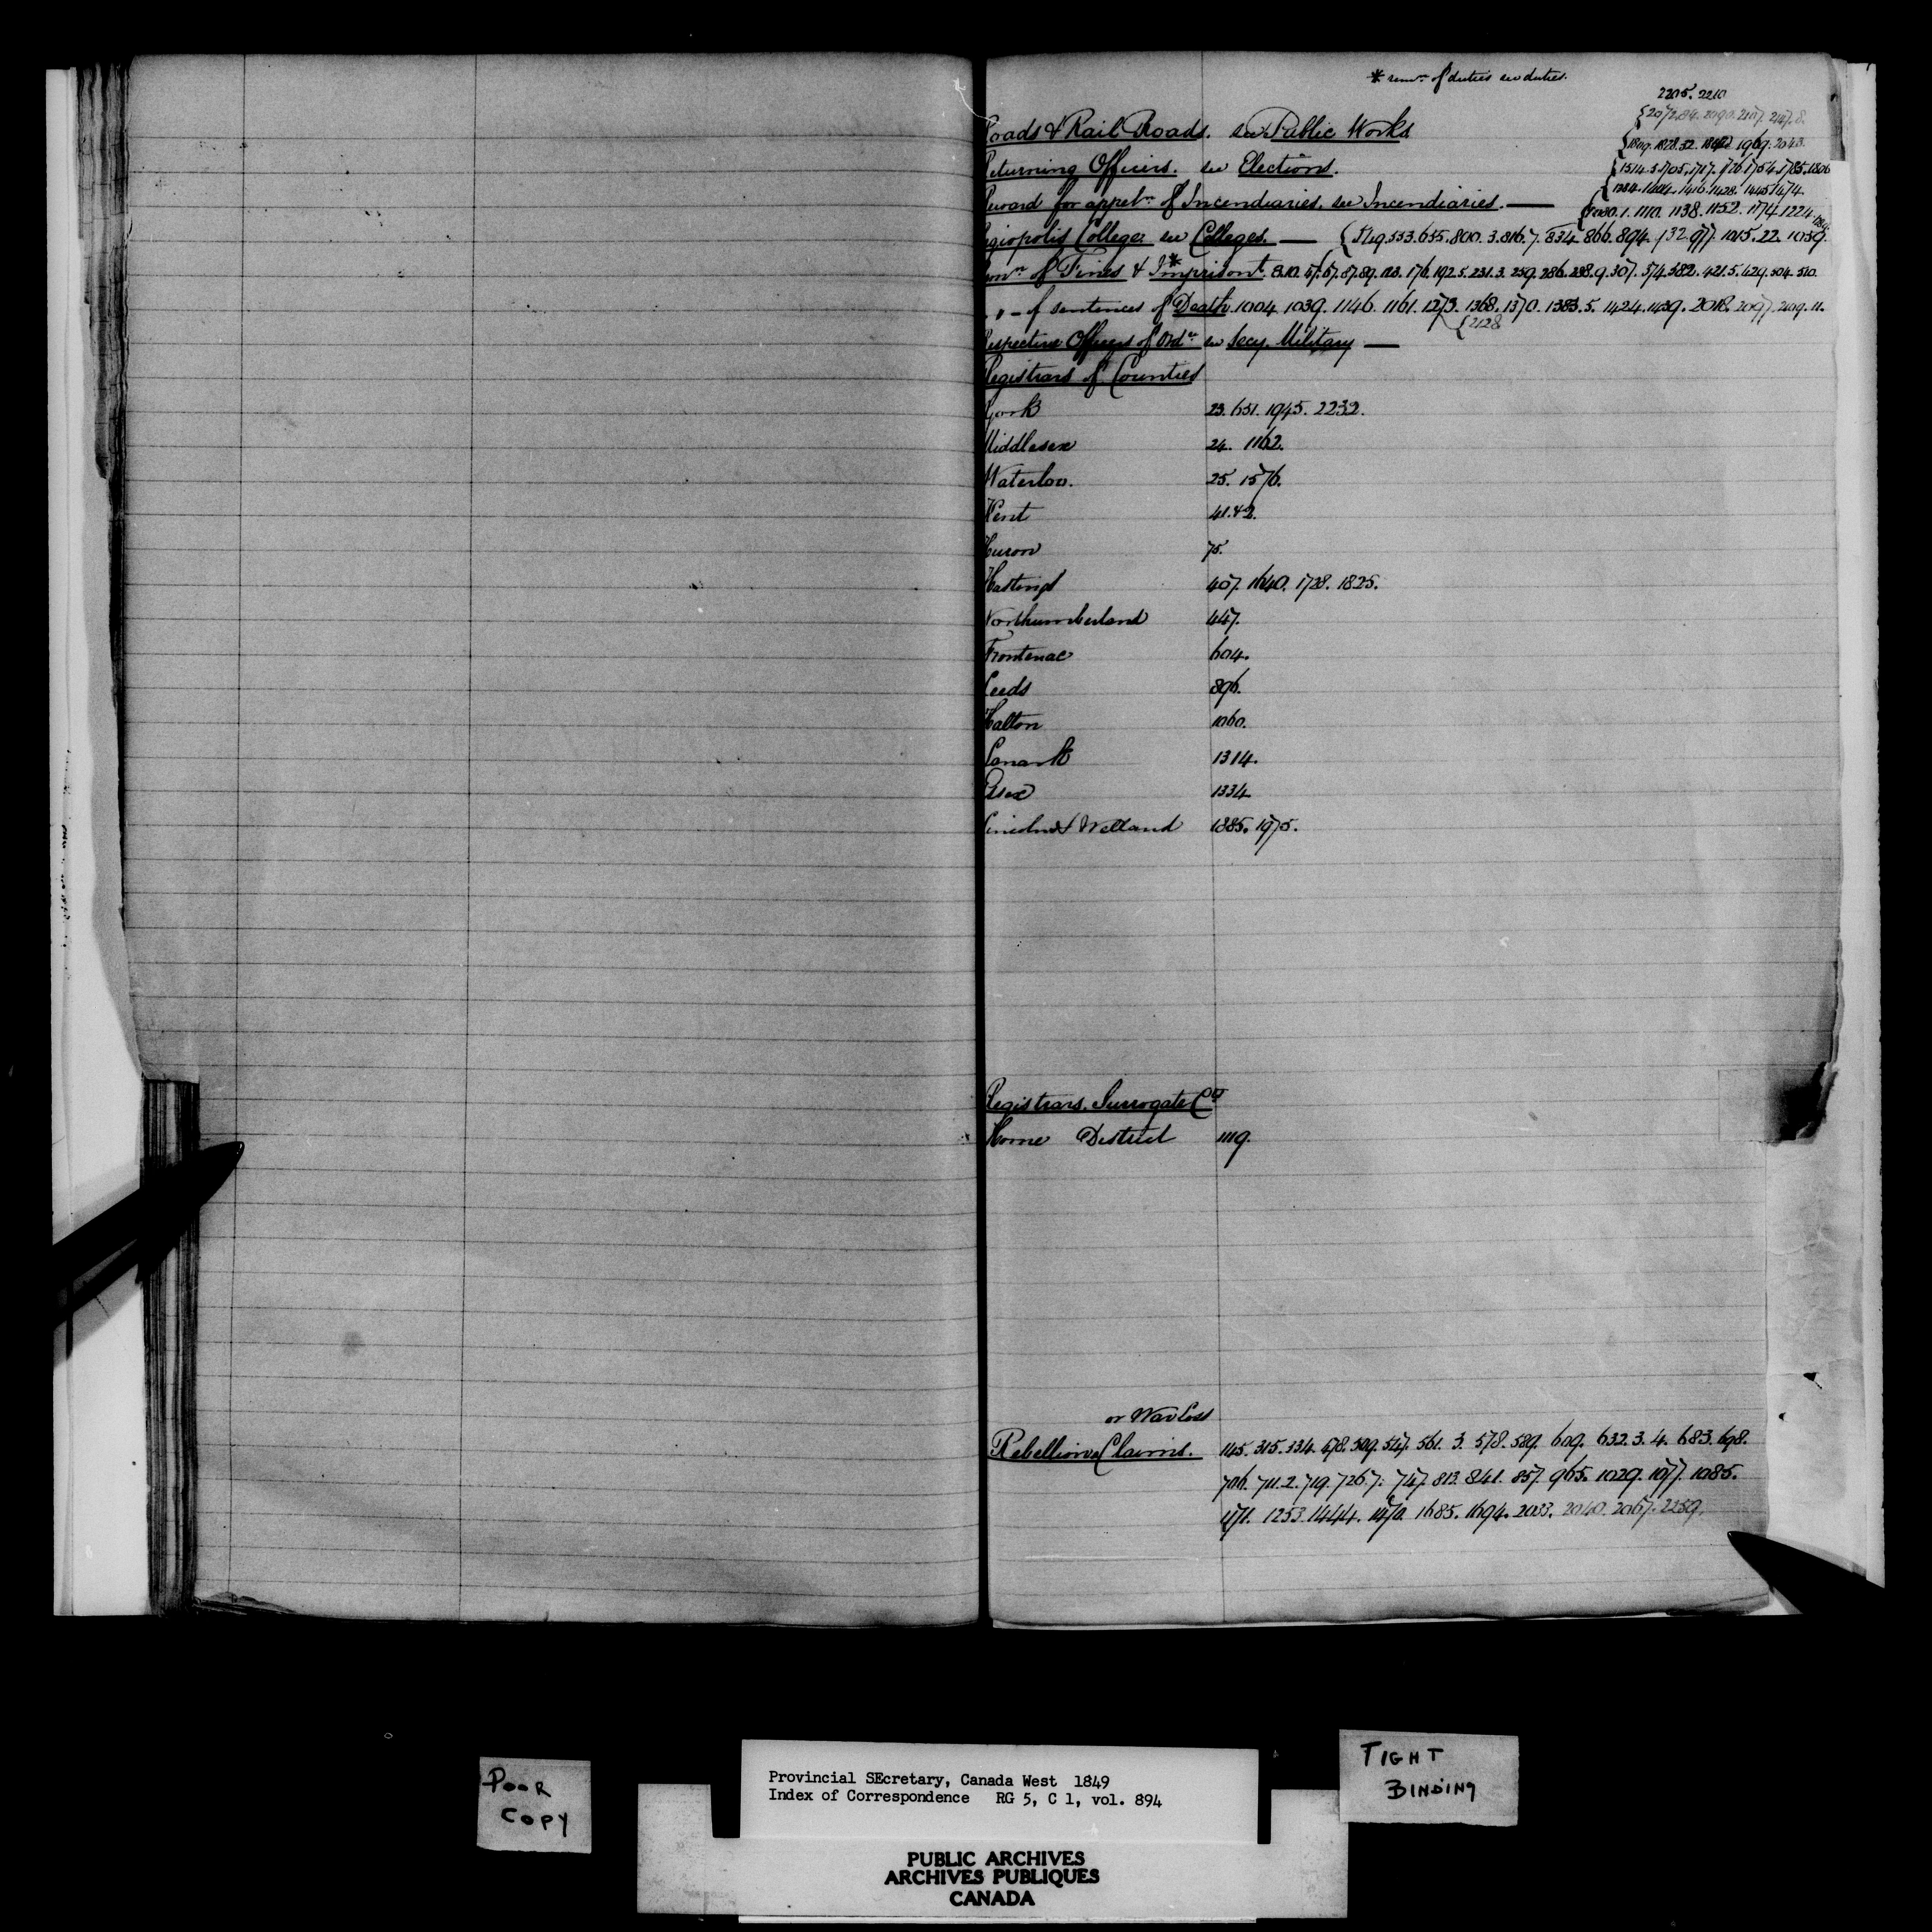 * rem.n of duties see duties.
2205. 2210
{2072.84. 2090. 2107. 2127.8.
Roads & Rail Roads. see Public Works
{1809. 1828.32. 1969. 2043.
Returning Officers. see Elections.
{1514. 1705. 1717. 1726. 1754. 1785. 1806
1416. 1428. 1445. 1474.
Reward for appreh.n of Incendiaries. see Incendiaries. —
1. 1110. 1138. 1152. 1174. 1224.
Regiopolis College. see Colleges. — {519. 533. 635. 800. 3. 816. 7. 834. 866. 894. 932. 977. 1015. 22. 1039.
Rem.n of Fines & Imprisont.* 8.10. 47. 67. 87. 89. 123. 176. 192. 5. 231. 3. 259. 286. 298. 9. 307. 374. 382. 421. 5. 429. 504. 510.
" " of sentences of Death 1004. 1039. 1146. 1161. 1273. 1368. 1370. 1383. 5. 1424. 1439. 2018. 2097. 2109. 11.
{2128
Respective Officers of Ord.ce see Secy. Military —
Registrars of Counties
York 23. 651. 1945. 2232.
Middlesex 24. 1162.
Waterloo. 25. 1576.
Kent 41. 42.
Huron 75.
Hastings 407. 1640. 1728. 1825.
Northumberland 447.
Frontenac 604.
Leeds 896.
Halton 1060.
Lanark 1314.
Essex 1334
Lincoln & Welland 1885. 1975.
Registrars. Surrogate Co
Home District 1119.
or War Loss
Rebellion Claims. 145. 315. 334. 478. 509. 547. 561. 3. 578. 589. 609. 632. 3. 4. 683. 698.
706. 711. 2. 719. 726. 7. 747. 813. 841. 857. 965. 1029. 1077. 1085.
1171. 1253. 1444. 1470. 1685. 1694. 2033. 2040. 2067. 2259.
POOR
COPY
Provincial SEcretary, Canada West 1849
Index of Correspondence RG 5, C 1, vol. 894
TIGHT
BINDING
PUBLIC ARCHIVES
ARCHIVES PUBLIQUES
CANADA